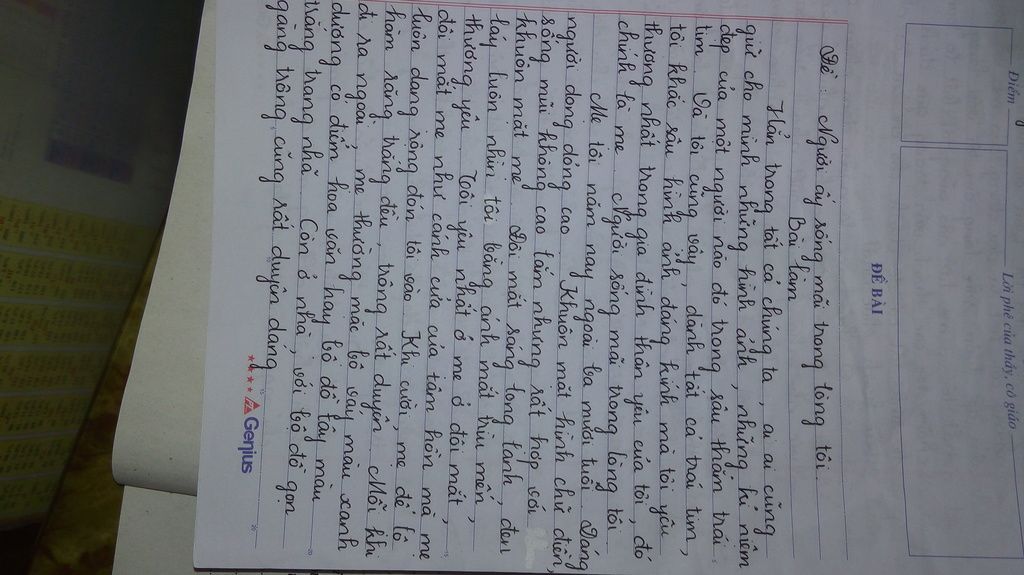 Điểm
Lời phê của thầy, cô giáo
ĐỀ BÀI
Đề: Người ấy sống mãi trong lòng tôi.
Bài làm
Hẳn trong tất cả chúng ta, ai ai cũng
giữ cho mình những hình ảnh, những kỉ niệm
đẹp của một người nào đó trong sâu thẳm trái
tim. Và tôi cũng vậy, dành tất cả trái tim,
tôi khắc sâu hình ảnh đáng kính mà tôi yêu
thương nhất trong gia đình thân yêu của tôi, đó
chính là mẹ. Người sống mãi trong lòng tôi.
Mẹ tôi năm nay ngoài ba mươi tuổi. Dáng
người dong dỏng cao. Khuôn mặt hình chữ điền,
sống mũi không cao lắm nhưng rất hợp với
khuôn mặt mẹ. Đôi mắt sáng long lanh, đen
láy luôn nhìn tôi bằng ánh mắt trìu mến,
thương yêu. Tôi yêu nhất ở mẹ ở đôi mắt,
đôi mắt mẹ như cánh cửa của tâm hồn mà mẹ
luôn dang rộng đón tôi vào. Khi cười, mẹ để lộ
hàm răng trắng đều, trông rất duyên. Mỗi khi
đi ra ngoài, mẹ thường mặc bộ váy màu xanh
dương có điểm hoa văn hay bộ đồ tây màu
trắng trang nhã. Còn ở nhà, với bộ đồ gọn
gàng trông cũng rất duyên dáng.
Genius